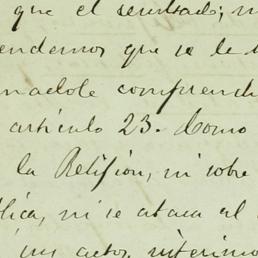 que el resultado; n
endemos que se le
nadole comprendi
artículo 23. Como
la Religion, ni sobre
lica, ni se ataca el
sus actos interino